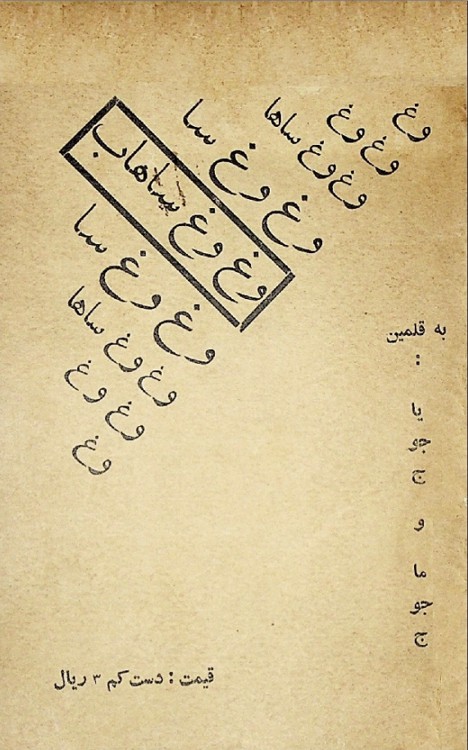 وغ
وغ وغ
وغ وغ ساها
وغ وغ سا
وغ وغ ساهاب
وغ وغ سا
وغ وغ ساها
وغ وغ
وغ
به قلمین
:
یا
جو
ج
و
ما
جو
ج
قیمت : دست کم ۳ ریال